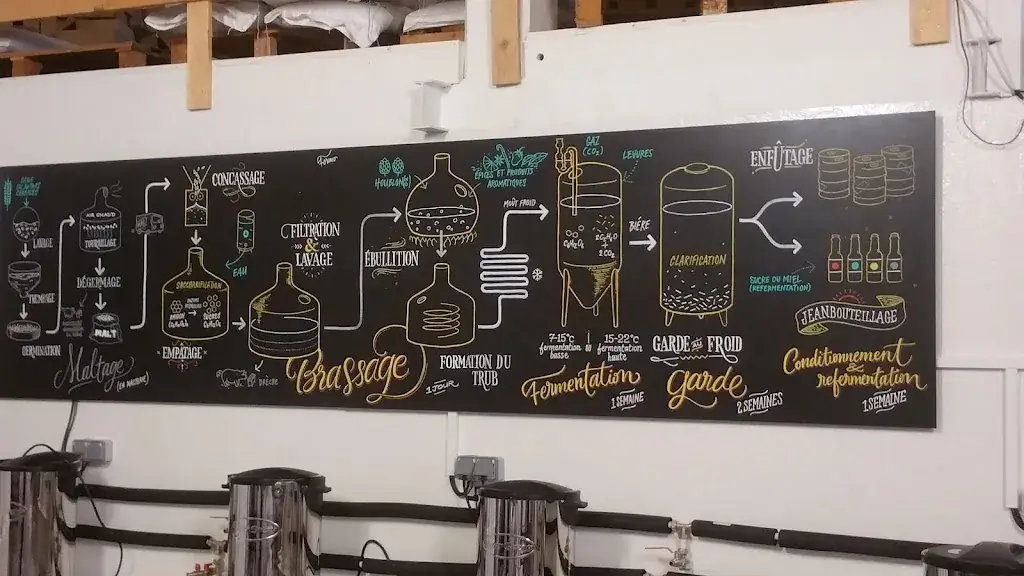 LAVAGE
TREMPAGE
GERMINATION
AIR CHAUD
TOURAILLAGE
DÉGERMAGE
MALT
Maltage
(EN MALTERIE)
CONCASSAGE
EAU
SACCHARIFICATION
EMPATAGE
FILTRATION
&
LAVAGE
DRÊCHE
Brassage
1 JOUR
HOUBLON(S)
ÉBULLITION
ÉPICES ET PRODUITS
AROMATIQUES
MOÛT FROID
FORMATION DU
TRUB
GAZ
(CO₂)
LEVURES
C₆H₁₂O₆
2C₂H₆O
+
2CO₂
7-15°C
fermentation
basse
ou
15-22°C
fermentation
haute
Fermentation
1 SEMAINE
BIÈRE
CLARIFICATION
GARDE AU FROID
garde
2 SEMAINES
ENFÛTAGE
SUCRE OU MIEL
(REFERMENTATION)
JEANBOUTEILLAGE
Conditionnement
&
refermentation
1 SEMAINE